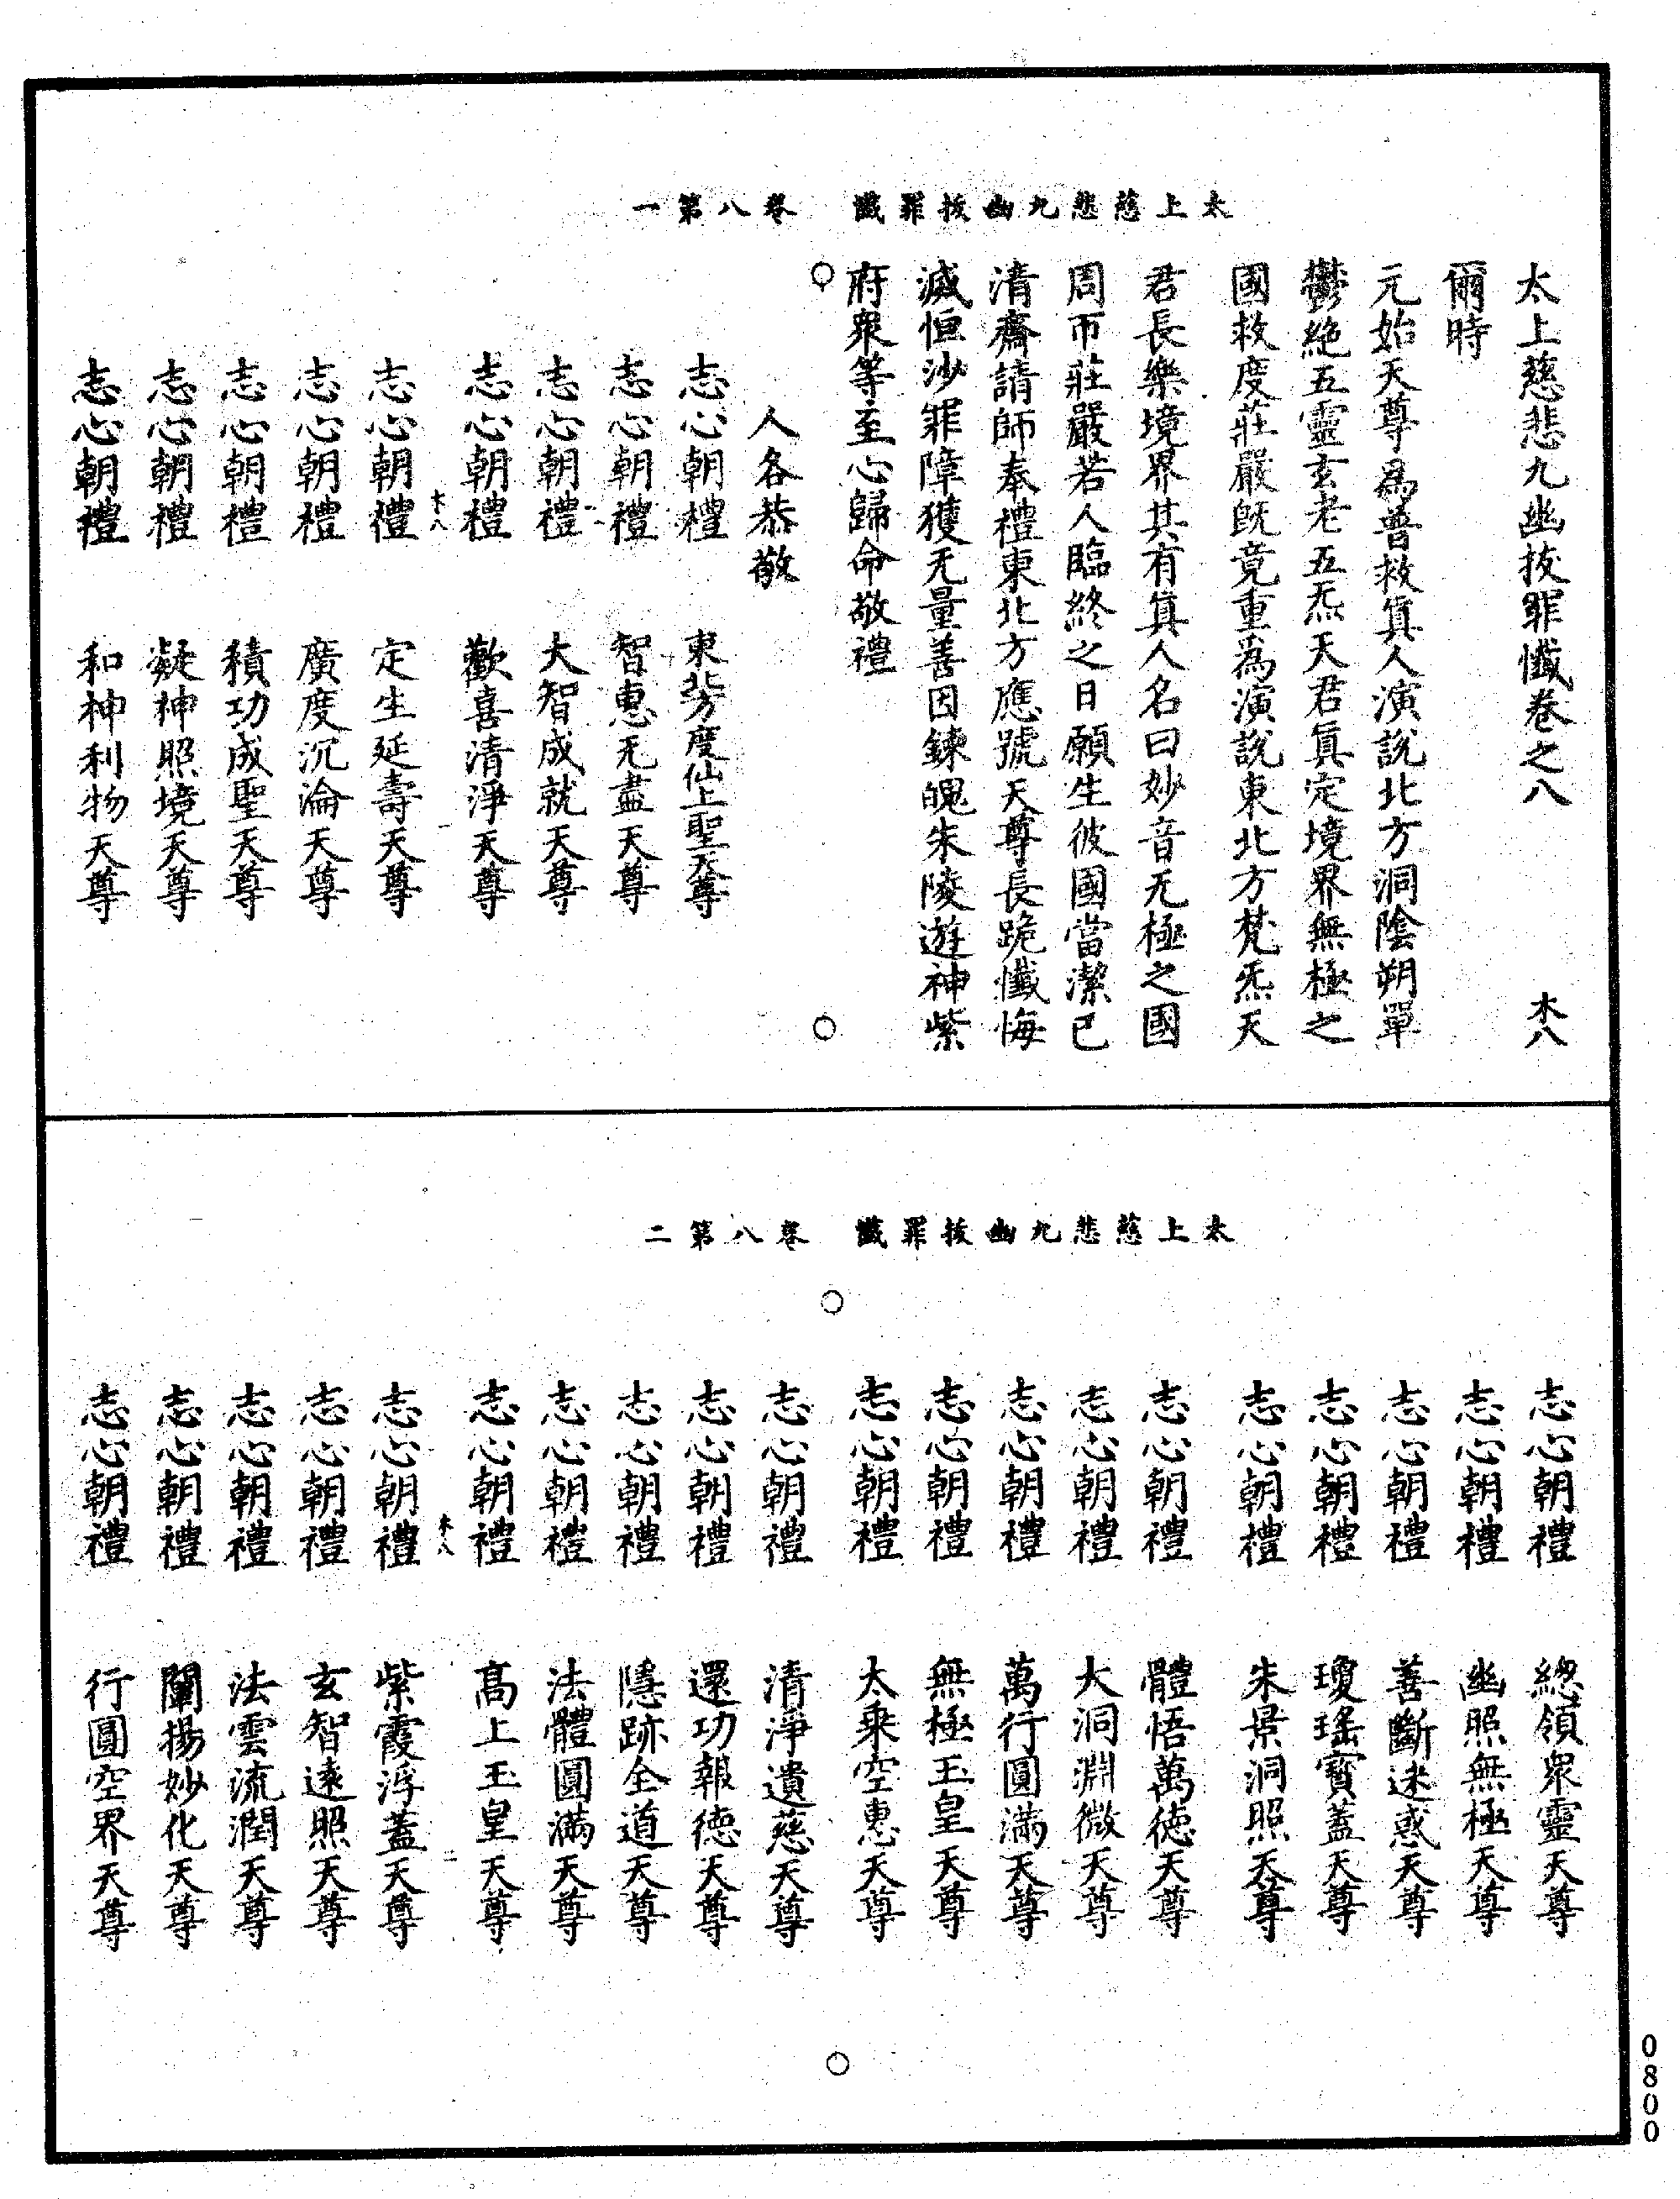 太上慈悲九幽拔罪懺　卷八第一
太上慈悲九幽拔罪懺卷之八　木八
爾時
元始天尊為普救眞人演說北方洞陰朔單
鬱絶五靈玄老五炁天君眞定境界無極之
國救度莊嚴旣竟重為演說東北方梵炁天
君長樂境界其有眞人名曰妙音无極之國
周帀莊嚴若人臨終之日願生彼國當潔已
清齋請師奉禮東北方應號天尊長跪懺悔
滅恒沙罪障獲无量善因鍊魄朱陵遊神紫
府衆等至心歸命敬禮
人各恭敬
志心朝禮　東北方度仙上聖天尊
志心朝禮　智惠无盡天尊
志心朝禮　大智成就天尊
志心朝禮　歡喜清淨天尊
木八　一
志心朝禮　定生延壽天尊
志心朝禮　廣度沉淪天尊
志心朝禮　積功成聖天尊
志心朝禮　凝神照境天尊
志心朝禮　和神利物天尊
太上慈悲九幽拔罪懺　卷八第二
志心朝禮　緫領衆靈天尊
志心朝禮　幽照無極天尊
志心朝禮　善斷迷惑天尊
志心朝禮　瓊瑤寶蓋天尊
志心朝禮　朱景洞照天尊
志心朝禮　體悟萬徳天尊
志心朝禮　大洞淵微天尊
志心朝禮　萬行圓滿天尊
志心朝禮　無極玉皇天尊
志心朝禮　太乘空惠天尊
志心朝禮　清淨遺慈天尊
志心朝禮　還功報德天尊
志心朝禮　隱跡全道天尊
志心朝禮　法體圓滿天尊
志心朝禮　髙上玉皇天尊
木八　二
志心朝禮　紫霞浮蓋天尊
志心朝禮　玄智遠照天尊
志心朝禮　法雲流潤天尊
志心朝禮　闡揚妙化天尊
志心朝禮　行圓空界天尊
0800